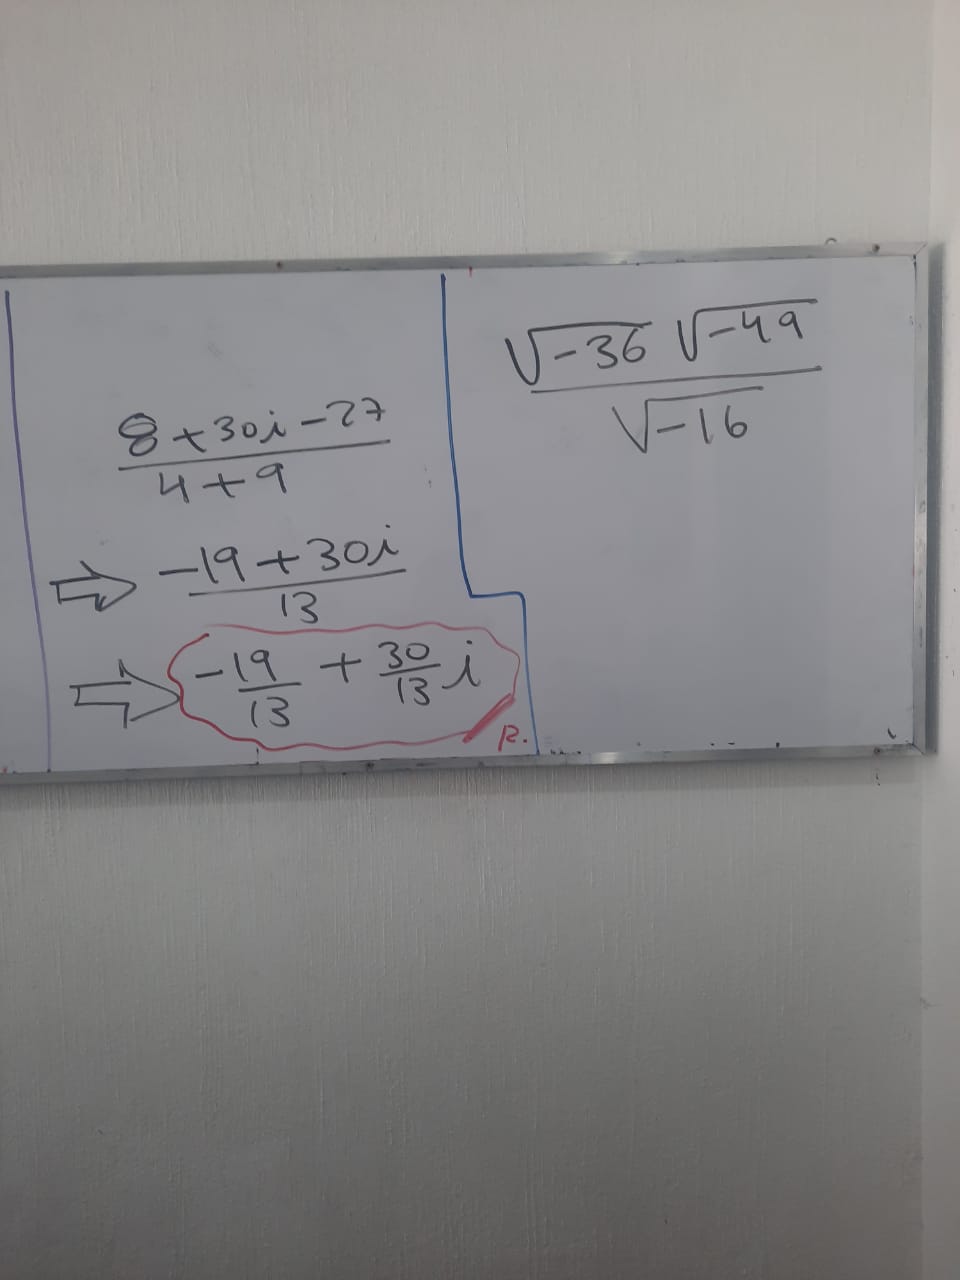 8+30i-27
4+9
⇒ -19+30i
13
⇒ -19/13 + 30/13 i
R.
√-36 √-49
√-16